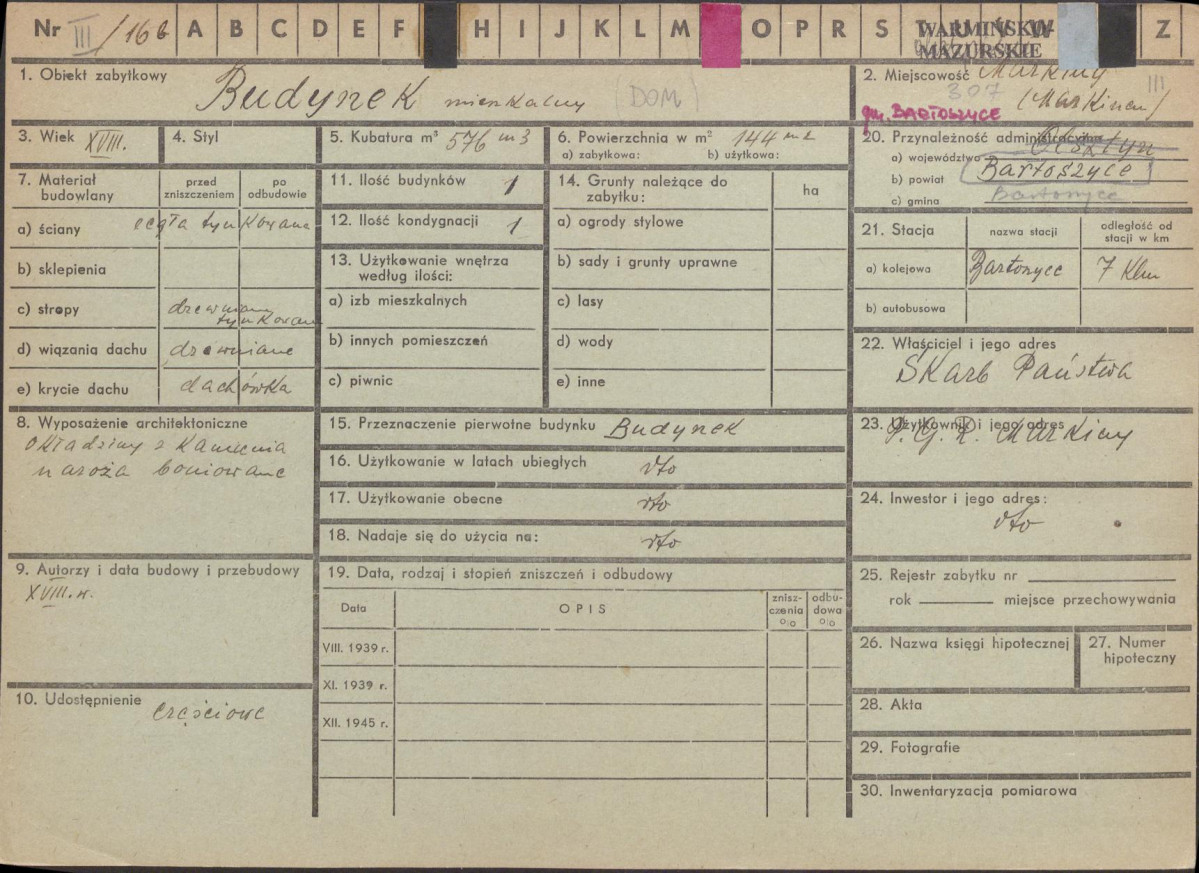 Nr III/166 A B C D E F H I J K L M O P R S T U W Z
WARMIŃSKO-
MAZURSKIE
1. Obiekt zabytkowy
Budynek mieszkalny (DOM)
2. Miejscowość Markiny
307
(Markinen)
III
gm. BARTOSZYCE
3. Wiek XVIII.
4. Styl
5. Kubatura m³ 576 m3
6. Powierzchnia w m² 144 m2
a) zabytkowa: b) użytkowa:
7. Materiał budowlany
przed zniszczeniem
po odbudowie
a) ściany cegła tynkowana
b) sklepienia
c) stropy drewniany tynkowany
d) wiązania dachu drewniane
e) krycie dachu dachówka
8. Wyposażenie architektoniczne
okładziny z kamienia
naroża boniowane
9. Autorzy i data budowy i przebudowy
XVIII. w.
10. Udostępnienie częściowe
11. Ilość budynków 1
12. Ilość kondygnacji 1
13. Użytkowanie wnętrza
według ilości:
a) izb mieszkalnych
b) innych pomieszczeń
c) piwnic
14. Grunty należące do
zabytku:
ha
a) ogrody stylowe
b) sady i grunty uprawne
c) lasy
d) wody
e) inne
15. Przeznaczenie pierwotne budynku Budynek
16. Użytkowanie w latach ubiegłych
17. Użytkowanie obecne
18. Nadaje się do użycia na:
19. Data, rodzaj i stopień zniszczeń i odbudowy
Data
OPIS
znisz-
czenia
%
odbu-
dowa
%
VIII. 1939 r.
XI. 1939 r.
XII. 1945 r.
20. Przynależność administracyjna
a) województwo Olsztyn
b) powiat Bartoszyce
c) gmina Bartoszyce
21. Stacja
nazwa stacji
odległość od
stacji w km
a) kolejowa Bartoszyce 7 klm
b) autobusowa
22. Właściciel i jego adres
Skarb Państwa
23. Użytkownik i jego adres
P.G.R. Markiny
24. Inwestor i jego adres:
25. Rejestr zabytku nr
rok miejsce przechowywania
26. Nazwa księgi hipotecznej
27. Numer
hipoteczny
28. Akta
29. Fotografie
30. Inwentaryzacja pomiarowa